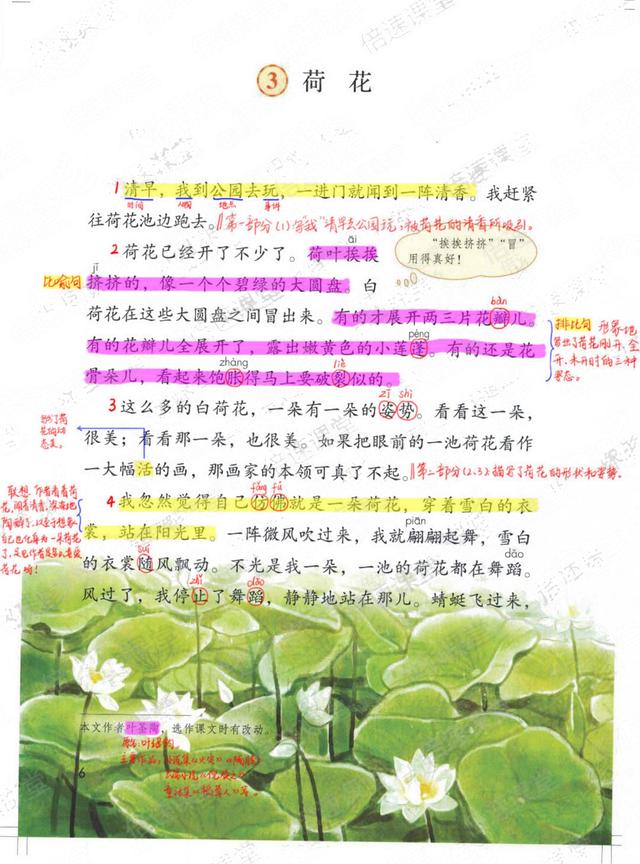 3 荷花
1 清早，我到公园去玩，一进门就闻到一阵清香。我赶紧
时间 人物 地点 事件
往荷花池边跑去。
āi
2 荷花已经开了不少了。荷叶挨挨
“挨挨挤挤”“冒”
用得真好！
比喻句
jǐ
挤挤的，像一个个碧绿的大圆盘。白
荷花在这些大圆盘之间冒出来。有的才展开两三片花瓣儿。
bàn
有的花瓣儿全展开了，露出嫩黄色的小莲蓬。有的还是花
péng
骨朵儿，看起来饱胀得马上要破裂似的。
zhàng liè
排比句
3 这么多的白荷花，一朵有一朵的姿势。看看这一朵，
zī shì
很美；看看那一朵，也很美。如果把眼前的一池荷花看作
一大幅活的画，那画家的本领可真了不起。
第二部分(2、3)描写了荷花的形状和姿势。
4 我忽然觉得自己仿佛就是一朵荷花，穿着雪白的衣
fǎng fú
裳，站在阳光里。一阵微风吹过来，我就翩翩起舞，雪白
piān
的衣裳随风飘动。不光是我一朵，一池的荷花都在舞蹈。
suí dǎo
风过了，我停止了舞蹈，静静地站在那儿。蜻蜓飞过来，
zhǐ dǎo
本文作者叶圣陶，选作课文时有改动。
6